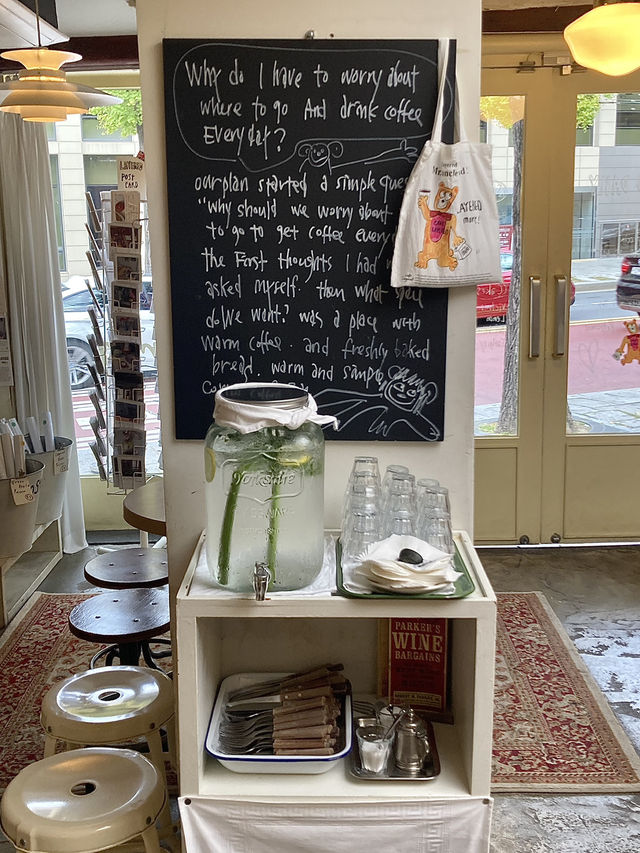 Why do I have to worry about
where to go And drink coffee
Everyday?
ourplan started a simple que
"why should we worry about
to go to get coffee every
the First thoughts I had
asked myself. then what
do We want? was a place with
warm coffee. and freshly baked
bread. warm and simple
LAYERED
POST
CARD
LAYERED
more!
Yorkshire
PARKER'S
WINE
BARGAINS